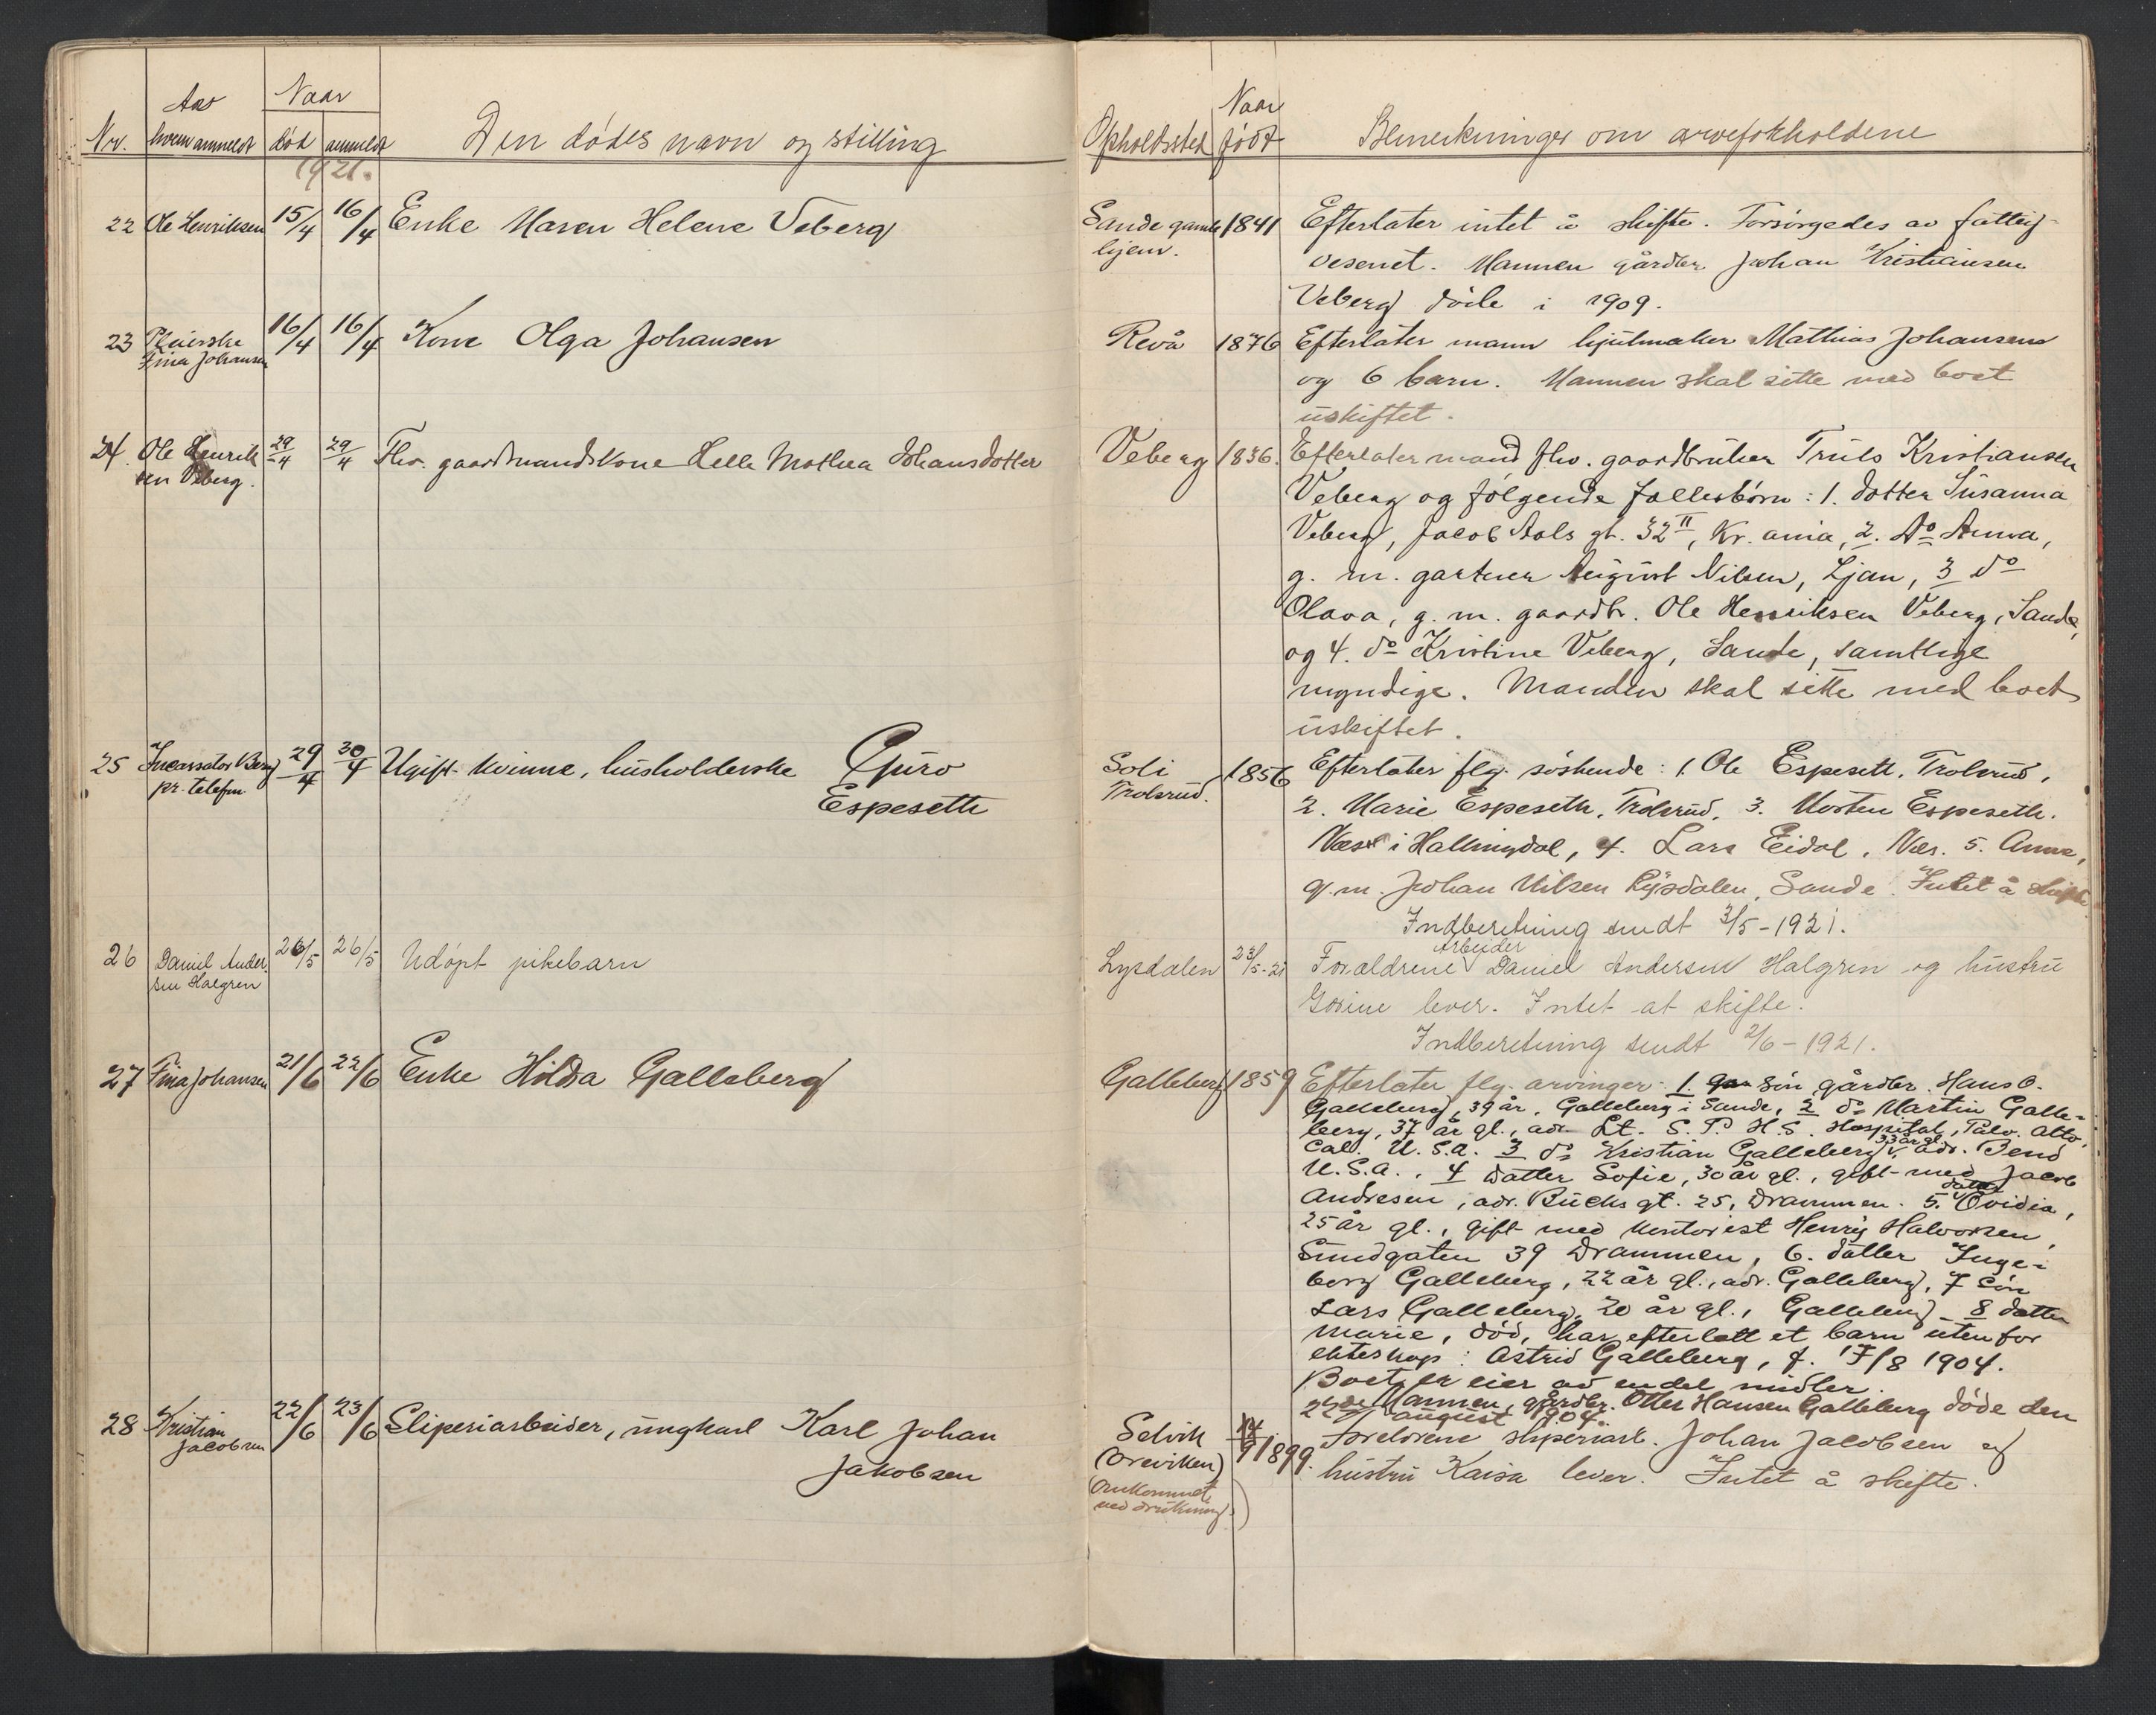 Nr.
Av hvem anmeldt
Naar
død
anmeldt
Den dødes navn og stilling
Opholdssted
Naar født
Bemerkninger om arveforholdene
1921.
22 Ole Henriksen 15/4 16/4 Enke Maren Helene Veberg
Sande gamle 1841 Efterlater intet å skifte. Forsørgedes av fattig-
hjem. vesenet. Mannen gårdbr. Johan Kristiansen
Veberg døde i 1909.
23 Pleierske 16/4 16/4 Kone Olga Johansen
Fina Johansen
Revå 1876 Efterlater mann hjulmaker Mathias Johansen
og 6 barn. Mannen skal sitte med boet
uskiftet.
24. Ole Henrik 29/4 29/4 Fhv. gaardmandskone Helle Mathea Johansdotter
sen Veberg.
Veberg 1836. Efterlater mand fhv. gaardbruker Truls Kristiansen
Veberg og følgende fællesbørn: 1. datter Susanna
Veberg, Jacob Aals gt. 32 II, Kr.ania, 2. do Anna,
g. m. gartner August Nilsen, Ljan, 3 do
Olava, g. m. gaardbr. Ole Henriksen Veberg, Sande,
og 4. do Kristine Veberg, Sande, samtlige
myndige. Manden skal sitte med boet
uskiftet.
25 Incassator Berg 29/4 30/4 Ugift kvinne, husholderske Guro
pr. telefon Espeseth
Soli 1856 Efterlater flg. søskende: 1. Ole Espeseth, Trolsrud,
Trolsrud. 2. Marie Espeseth, Trolsrud, 3. Morten Espeseth,
Næs i Hallingdal, 4. Lars Eidal, Næs. 5. Anne,
g. m. Johan Nilsen Lysdalen, Sande. Intet å skifte.
Indberetning sendt 3/5-1921.
26 Daniel Ander 26/5 26/5 Udøpt pikebarn
sen Halgren
Lysdalen 23/5-21 Forældrene Arbeider Daniel Andersen Halgren og hustru
Gorine lever. Intet at skifte.
Indberetning sendt 2/6-1921.
27 Fina Johansen 21/6 22/6 Enke Hilda Galleberg
Galleberg 1859 Efterlater flg. arvinger: 1. søn gårdbr. Hans O.
Galleberg, 39 år, Galleberg i Sande, 2 do Martin Galle-
berg, 37 år gl., adr. Lt. S. P. H. S. Hospital, Palo Alto,
Cal. U.S.A. 3 do Kristian Galleberg, 33 år gl. adr. Bend
U.S.A., 4 datter Sofie, 30 år gl., gift med Jacob
Andresen, adr. Buchs gt. 25, Drammen. 5. datter Ovidia,
25 år gl., gift med kontorist Henry Halvorsen,
Sundgaten 39 Drammen, 6. datter Inge-
borg Galleberg, 22 år gl., adr. Galleberg, 7 søn
Lars Galleberg, 20 år gl., Galleberg 8 datter
Marie, død, har efterlatt et barn utenfor
ekteskap: Astrid Galleberg, f. 17/8 1904.
Boet er eier av endel midler.
Mannen, gårdbr. Otter Hansen Galleberg døde den
22de august 1904.
28 Kristian 22/6 23/6 Sliperiarbeider, ungkarl Karl Johan
Jacobsen Jakobsen
Selvik 14/9 1899. Foreldrene sliperiarb. Johan Jacobsen og
(Oreviken) hustru Kaisa lever. Intet å skifte.
(Omkommet
ved drukning)